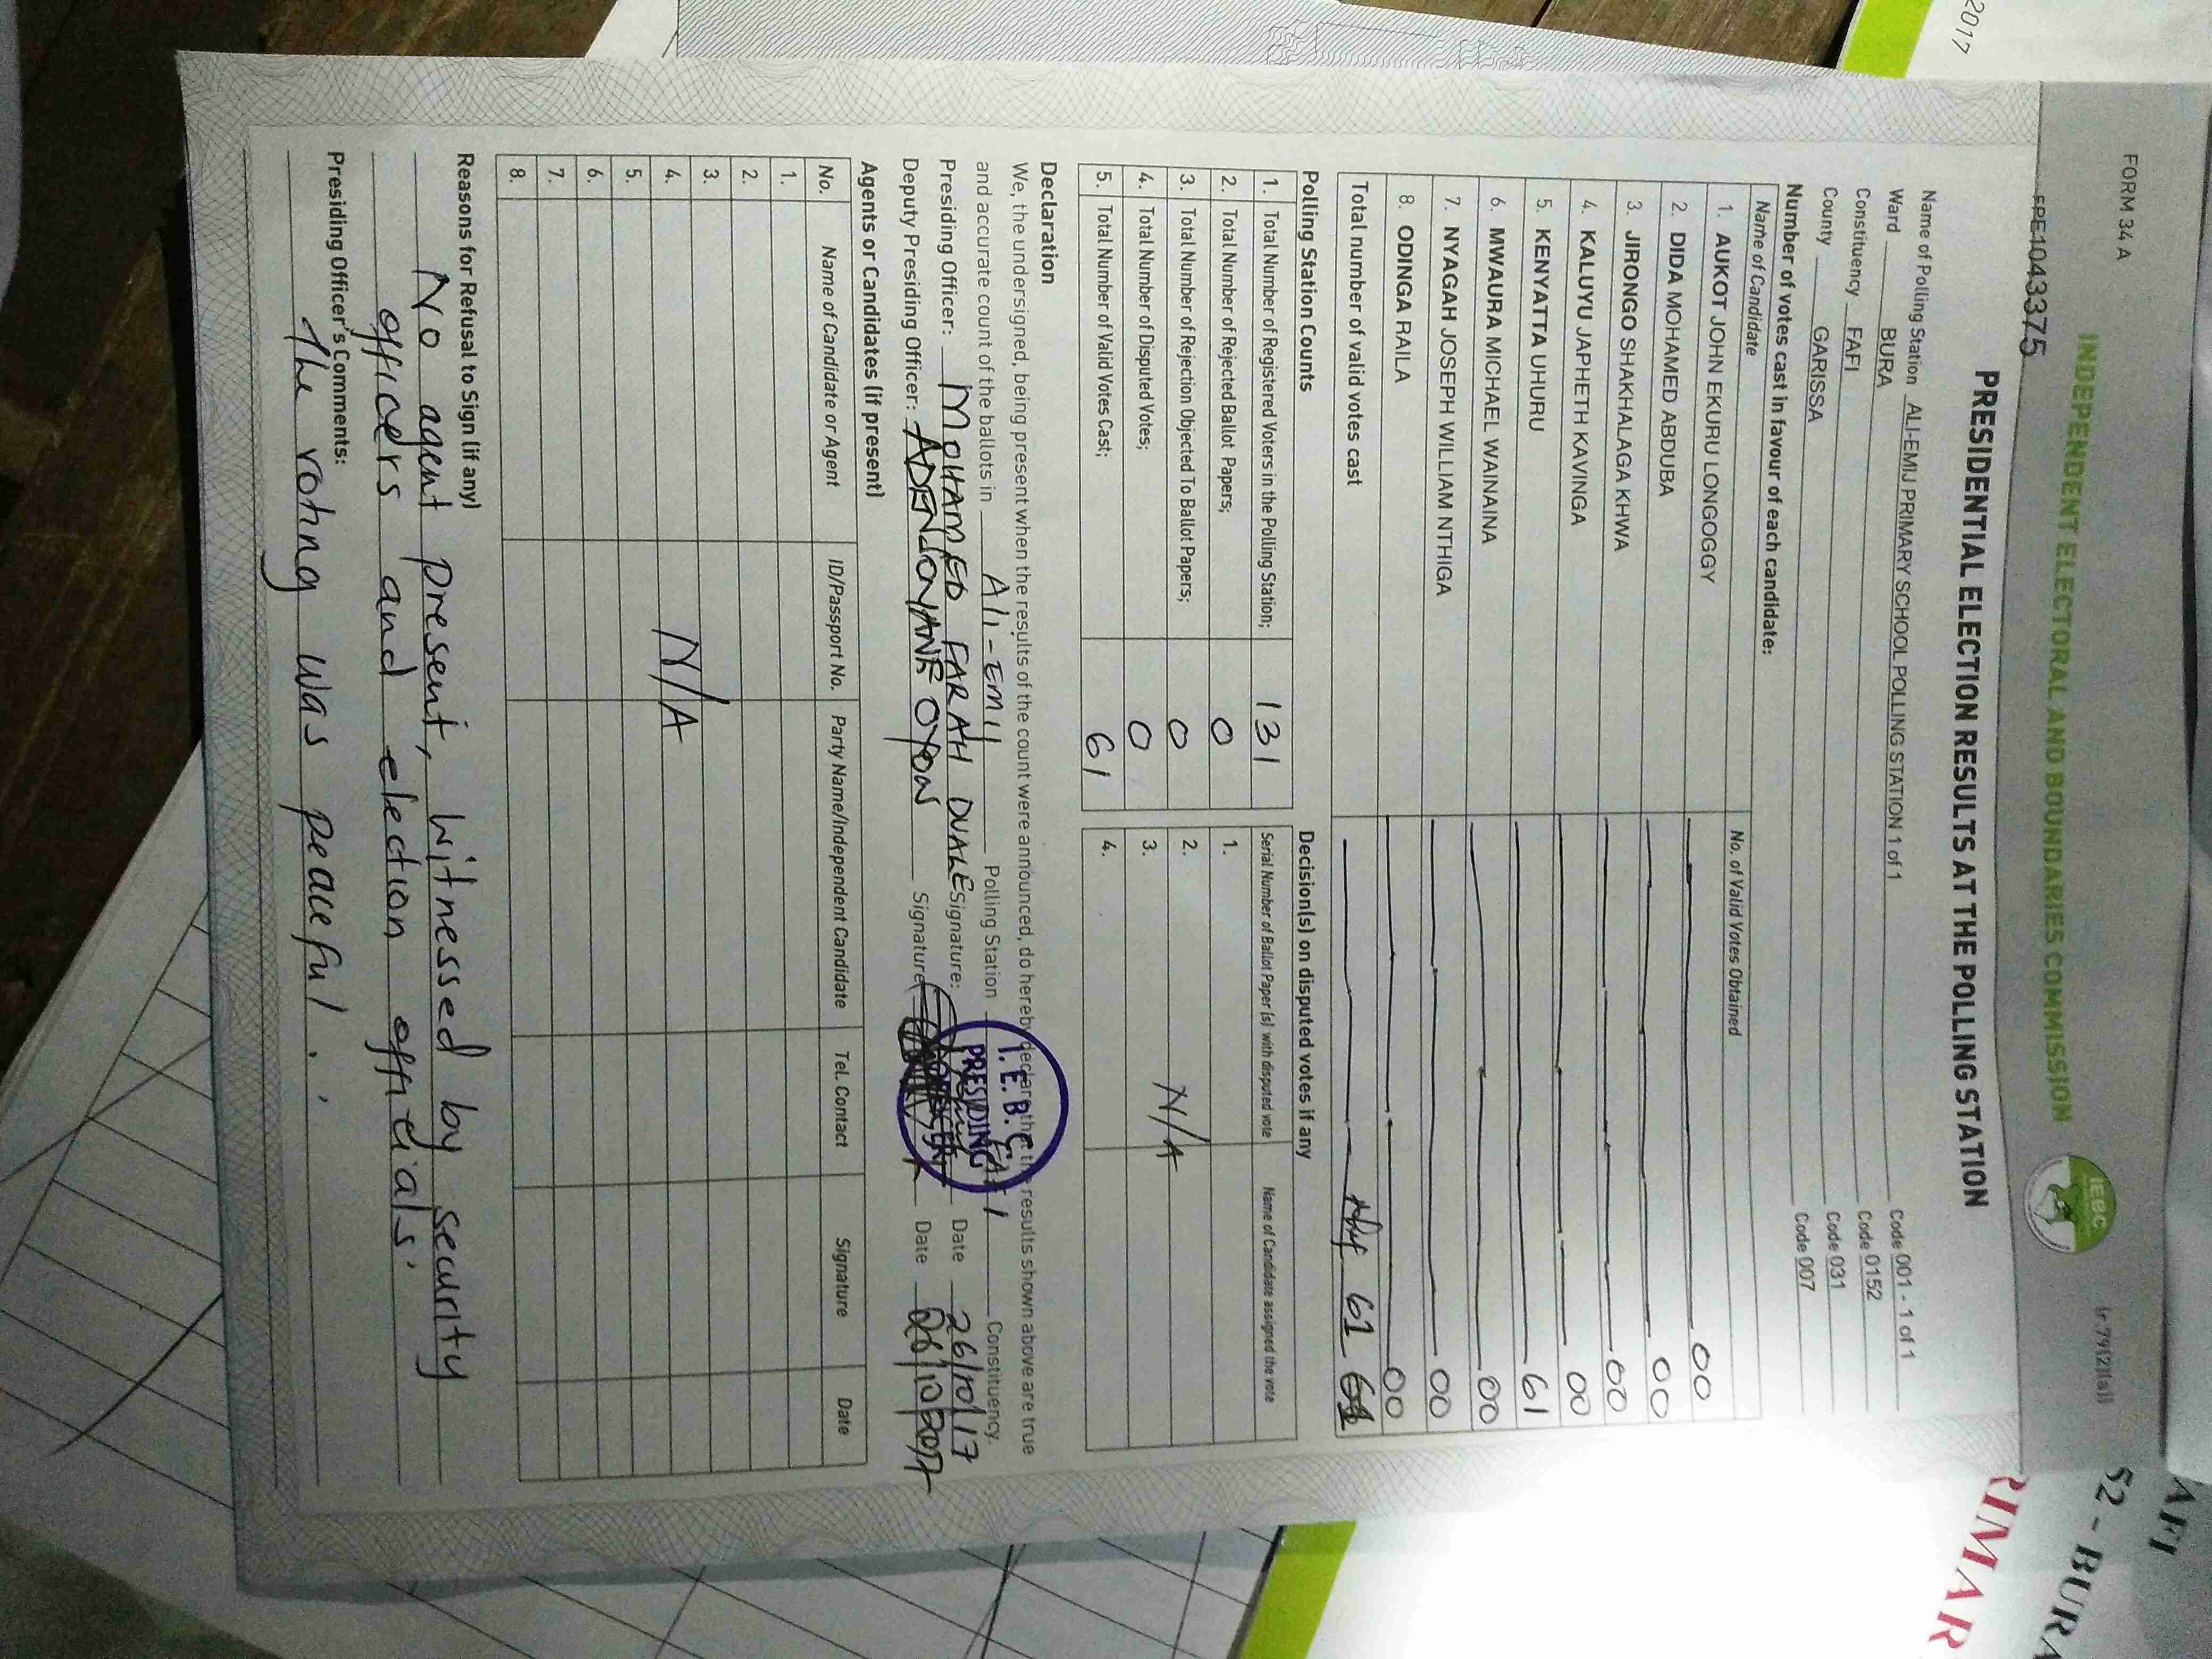 2017
FORM 34 A
INDEPENDENT ELECTORAL AND BOUNDARIES COMMISSION
IEBC
(r.79(2)(a))
AFI
52 - BURA
RIMAR
FPE1043375
PRESIDENTIAL ELECTION RESULTS AT THE POLLING STATION
Name of Polling Station ALI-EMIJ PRIMARY SCHOOL POLLING STATION 1 of 1 Code 001 - 1 of 1
Ward BURA Code 0152
Constituency FAFI Code 031
County GARISSA Code 007
Number of votes cast in favour of each candidate:
Name of Candidate No. of Valid Votes Obtained
1. AUKOT JOHN EKURU LONGOGGY 00
2. DIDA MOHAMED ABDUBA 00
3. JIRONGO SHAKHALAGA KHWA 00
4. KALUYU JAPHETH KAVINGA 00
5. KENYATTA UHURU 61
6. MWAURA MICHAEL WAINAINA 00
7. NYAGAH JOSEPH WILLIAM NTHIGA 00
8. ODINGA RAILA 00
Total number of valid votes cast 61
Polling Station Counts
1. Total Number of Registered Voters in the Polling Station; 131
2. Total Number of Rejected Ballot Papers; 0
3. Total Number of Rejection Objected To Ballot Papers; 0
4. Total Number of Disputed Votes; 0
5. Total Number of Valid Votes Cast; 61
Decision(s) on disputed votes if any
Serial Number of Ballot Paper (s) with disputed vote Name of Candidate assigned the vote
1.
2. N/A
3.
4.
Declaration
We, the undersigned, being present when the results of the count were announced, do hereby declare that the results shown above are true
and accurate count of the ballots in Ali-Emij Polling Station Constituency.
Presiding Officer: MOHAMED FARAH DUALE Signature: Date 26/10/17
Deputy Presiding Officer: Signature Date 26/10/2017
I.E.B.C
PRESIDING
Agents or Candidates (if present)
No. Name of Candidate or Agent ID/Passport No. Party Name/Independent Candidate Tel. Contact Signature Date
1.
2.
3.
4. N/A
5.
6.
7.
8.
Reasons for Refusal to Sign (if any)
No agent present, witnessed by security
officers and election officials.
Presiding Officer's Comments:
The voting was peaceful.